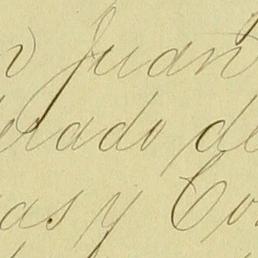 n Juan
erado de
as y Co